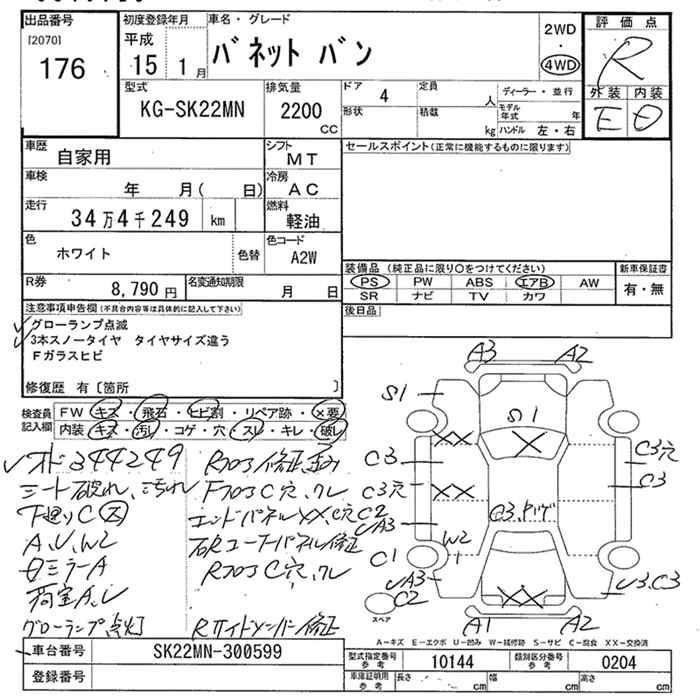 出品番号
[2070]
176
初度登録年月
平成
15 1月
車名・グレード
バネット バン
2WD
・
4WD
評価点
R
外装 内装
E D
型式
KG-SK22MN
排気量
2200
CC
ドア 4
定員
人
ディーラー・並行
形状
積載
kg
モデル年式 年
ハンドル 左・右
車歴
自家用
シフト
MT
セールスポイント(正常に機能するものに限ります)
車検
年 月( 日)
冷房
AC
走行
34万4千249 km
燃料
軽油
色
ホワイト
色替
色コード
A2W
装備品 (純正品に限り○をつけてください)
新車保証書
PS PW ABS エアB AW
有・無
SR ナビ TV カワ
R券
8,790円
名変通知期限
月 日
後日品
注意事項申告欄(不具合内容等は具体的に記入して下さい)
グローランプ点滅
3本スノータイヤ タイヤサイズ違う
Fガラスヒビ
修復歴 有〔箇所 〕
検査員記入欄
FW キズ・飛石・ヒビ割・リペア跡・×要
内装 キズ・汚れ・コゲ・穴・スレ・キレ・破れ
オド344249
シート破れ、汚れ
下廻りC
A、U、W2
ミラーA
荷室A、U
グローランプ点灯
Rフロア修正、歪み
FフロアC穴、クレ
エンドパネルXX、C穴C2
右Rコーナーパネル修正
RフロアC穴、クレ
Rサイドメンバー修正
A3 A2
S1
S1
XX
X
C3
C3穴
C3
C3穴
XX
UA3
W2
C1
UA3
C2
XX
U3.C3
スペア
A1 A2
A-キズ E-エクボ U-凹み W-補修跡 S-サビ C-腐食 XX-交換済
車台番号
SK22MN-300599
型式指定番号
参考
10144
類別区分番号
参考
0204
登録番号
車庫証明用
参考
長さ cm 幅 cm 高さ cm